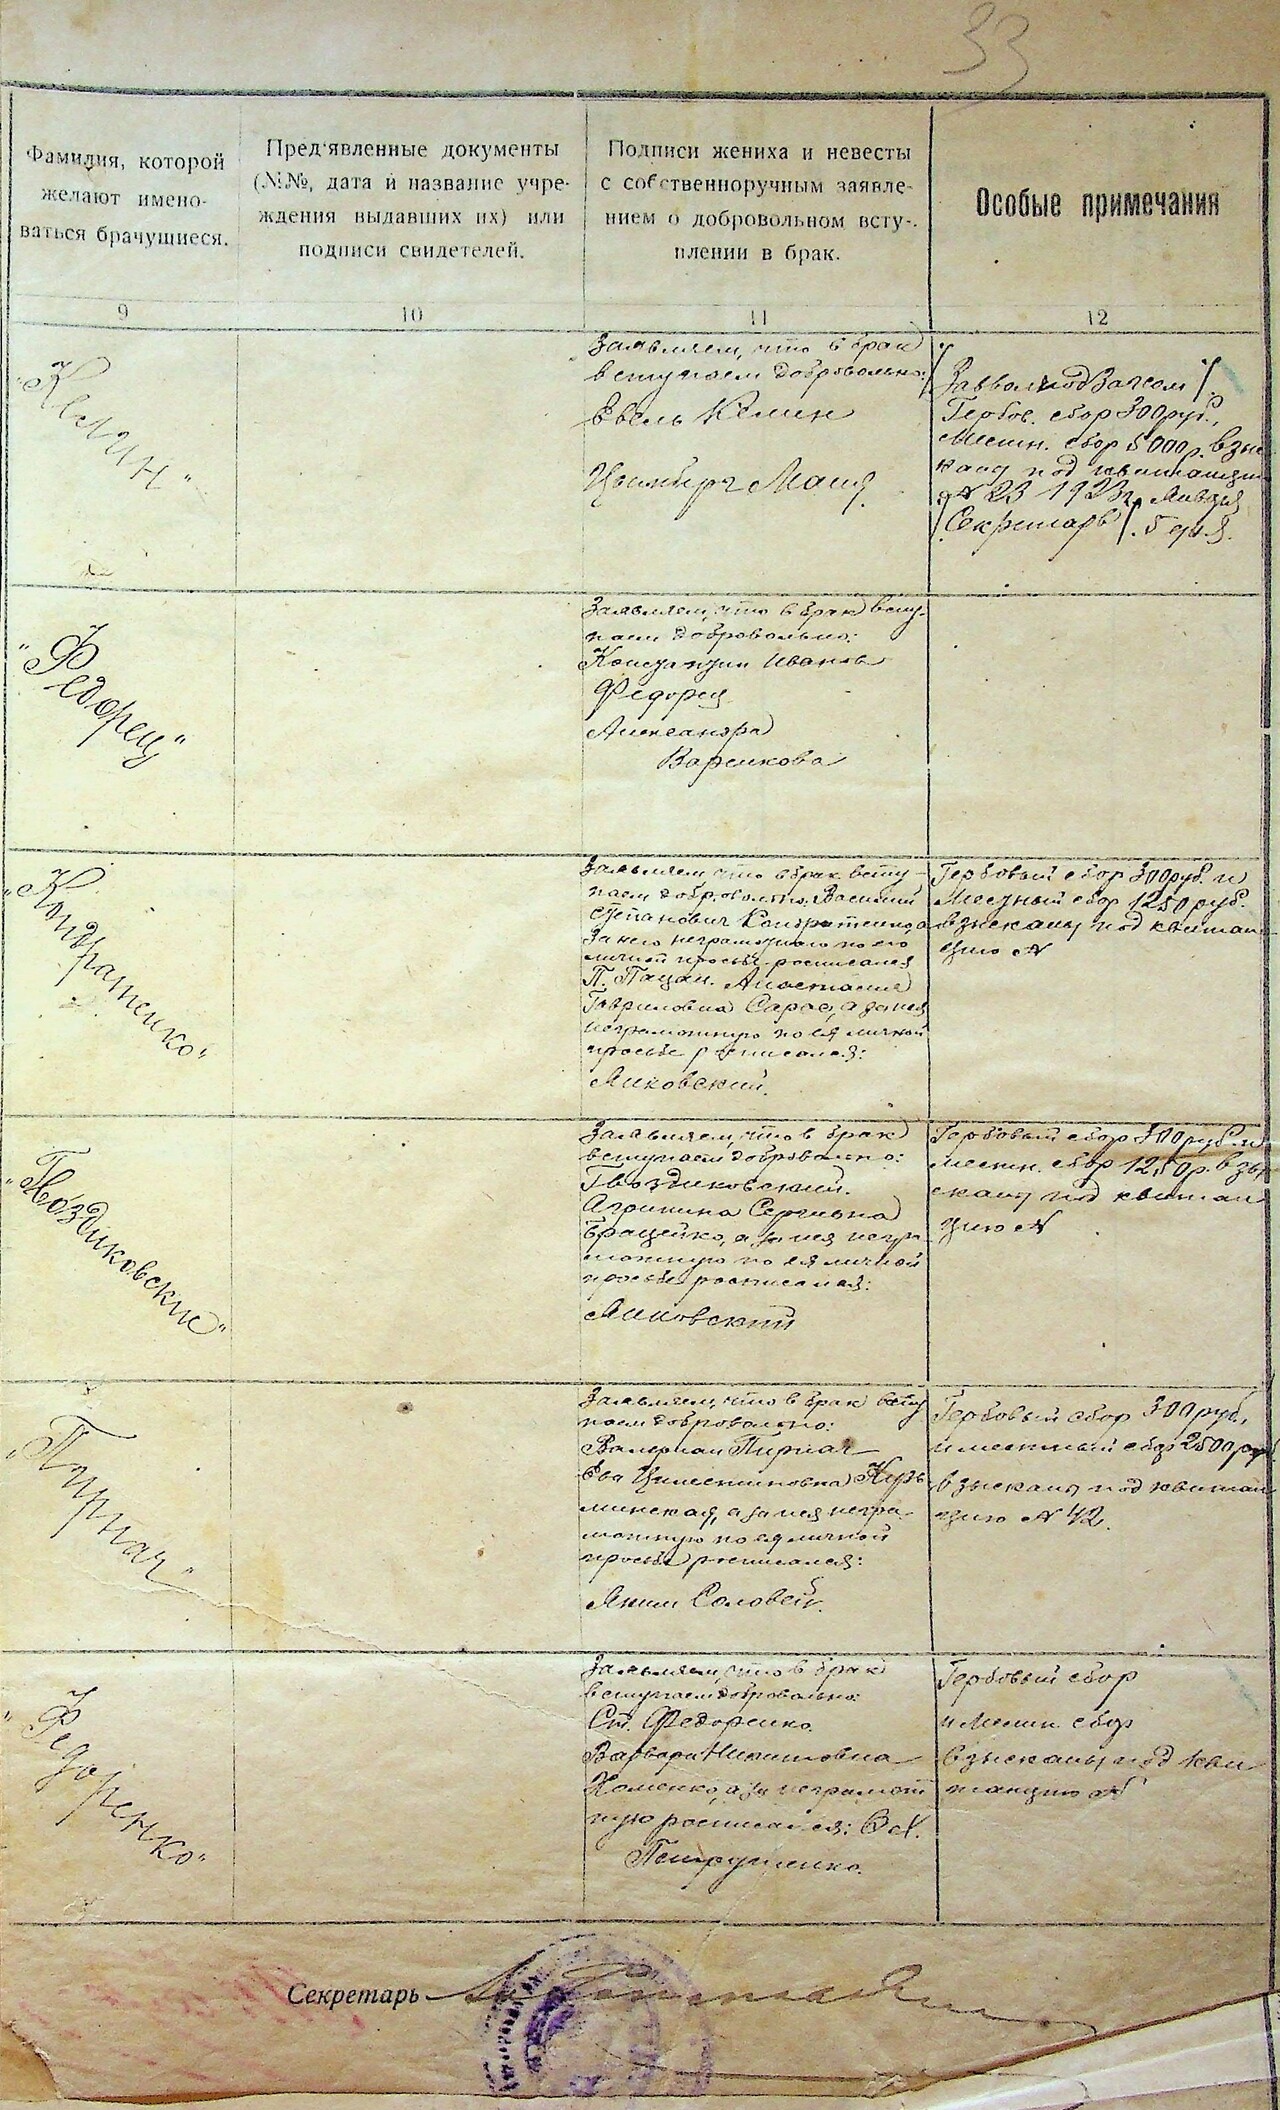 33
Фамилия, которой
желают имено-
ваться брачущиеся.
Пред'явленные документы
(№№, дата и название учре-
ждения выдавших их) или
подписи свидетелей.
Подписи жениха и невесты
с собственноручным заявле-
нием о добровольном всту-
плении в брак.
Особые примечания
9
10
11
12
"Келин"
Заявляем, что в брак
вступаем добровольно:
Евель Келин
Маня
Гербов. сбор 300 руб.,
Местн. сбор 5000 р. взы-
каны под квитанцию
№ 23 1923 г. Января
Секретарь 5 дня.
"Федорец"
Заявляем, что в брак всту-
паем добровольно:
Иванов
Федорец
Александра
Варенкова
"Кондратенко"
Заявляем, что в брак всту-
паем добровольно Василий
Степанович Кондратенко, а
за него неграмотного по его
личной просьбе росписался
П. Пацан. Анастасия
Гавриловна а за нея
неграмотную по ея личной
просьбе росписался:
Янковский.
Гербовый сбор 300 руб. и
Местный сбор 1250 руб.
взысканы под квитан-
цию №
"Гвоздиковские"
Заявляем, что в брак
вступаем добровольно:
Гвоздиковский.
Агрипина Сергиевна
а за нея негра-
мотную по ея личной
просьбе росписался:
Янковский
Гербовый сбор 300 руб. и
местн. сбор 1250 р. взы-
сканы под квитан
цию №
"Пирнач"
Заявляем, что в брак всту
паем добровольно:
Валериан Пирнач
Ева
а за нея негра-
мотную по ея личной
просьбе росписался:
Яким Соловей.
Гербовый сбор 300 руб.,
и местный сбор 2500 руб.
взысканы под квитан
цию № 42.
"Федоренко"
Заявляем, что в брак
вступаем добровольно:
Ст. Федоренко.
Варвара Никитовна
Хоменко, а за неграмот
ную росписался:
Петрушенко.
Гербовый сбор
и Местн. сбор
взысканы под кви
танцию №
Секретарь